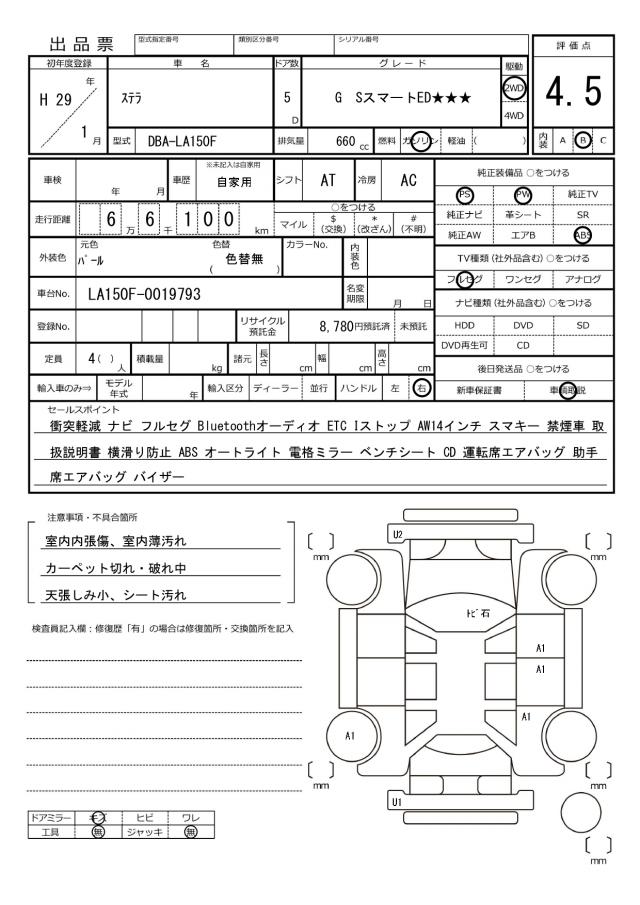 出品票
型式指定番号 類別区分番号 シリアル番号
評価点
4.5
初年度登録 車名 ドア数 グレード 駆動
H 29 年 1 月
ステラ
5 D
G SスマートED★★★
2WD
4WD
型式 DBA-LA150F 排気量 660 cc 燃料 ガソリン 軽油 ( )
内装 A B C
車検 年 月 車歴 ※未記入は自家用 自家用 シフト AT 冷房 AC
純正装備品 ○をつける
PS PW 純正TV
純正ナビ 革シート SR
純正AW エアB ABS
走行距離 6 万 6 千 1 0 0 km
○をつける
マイル $(交換) *(改ざん) #(不明)
外装色 元色 パール 色替 ( 色替無 ) カラーNo. 内装色
TV種類 (社外品含む) ○をつける
フルセグ ワンセグ アナログ
車台No. LA150F-0019793 名変期限 月 日
ナビ種類 (社外品含む) ○をつける
HDD DVD SD
DVD再生可 CD
登録No. リサイクル預託金 8,780円預託済 未預託
定員 4( )人 積載量 kg 諸元 長さ cm 幅 cm 高さ cm
後日発送品 ○をつける
新車保証書 車輌取説
輸入車のみ⇒ モデル年式 年 輸入区分 ディーラー 並行 ハンドル 左 右
セールスポイント
衝突軽減 ナビ フルセグ Bluetoothオーディオ ETC Iストップ AW14インチ スマキー 禁煙車 取
扱説明書 横滑り防止 ABS オートライト 電格ミラー ベンチシート CD 運転席エアバッグ 助手
席エアバッグ バイザー
注意事項・不具合箇所
室内内張傷、室内薄汚れ
カーペット切れ・破れ中
天張しみ小、シート汚れ
検査員記入欄：修復歴「有」の場合は修復箇所・交換箇所を記入
U2
[ ] mm
[ ] mm
トビ石
A1
A1
A1
A1
[ ] mm
[ ] mm
U1
[ ] mm
ドアミラー キズ ヒビ ワレ
工具 無 ジャッキ 無